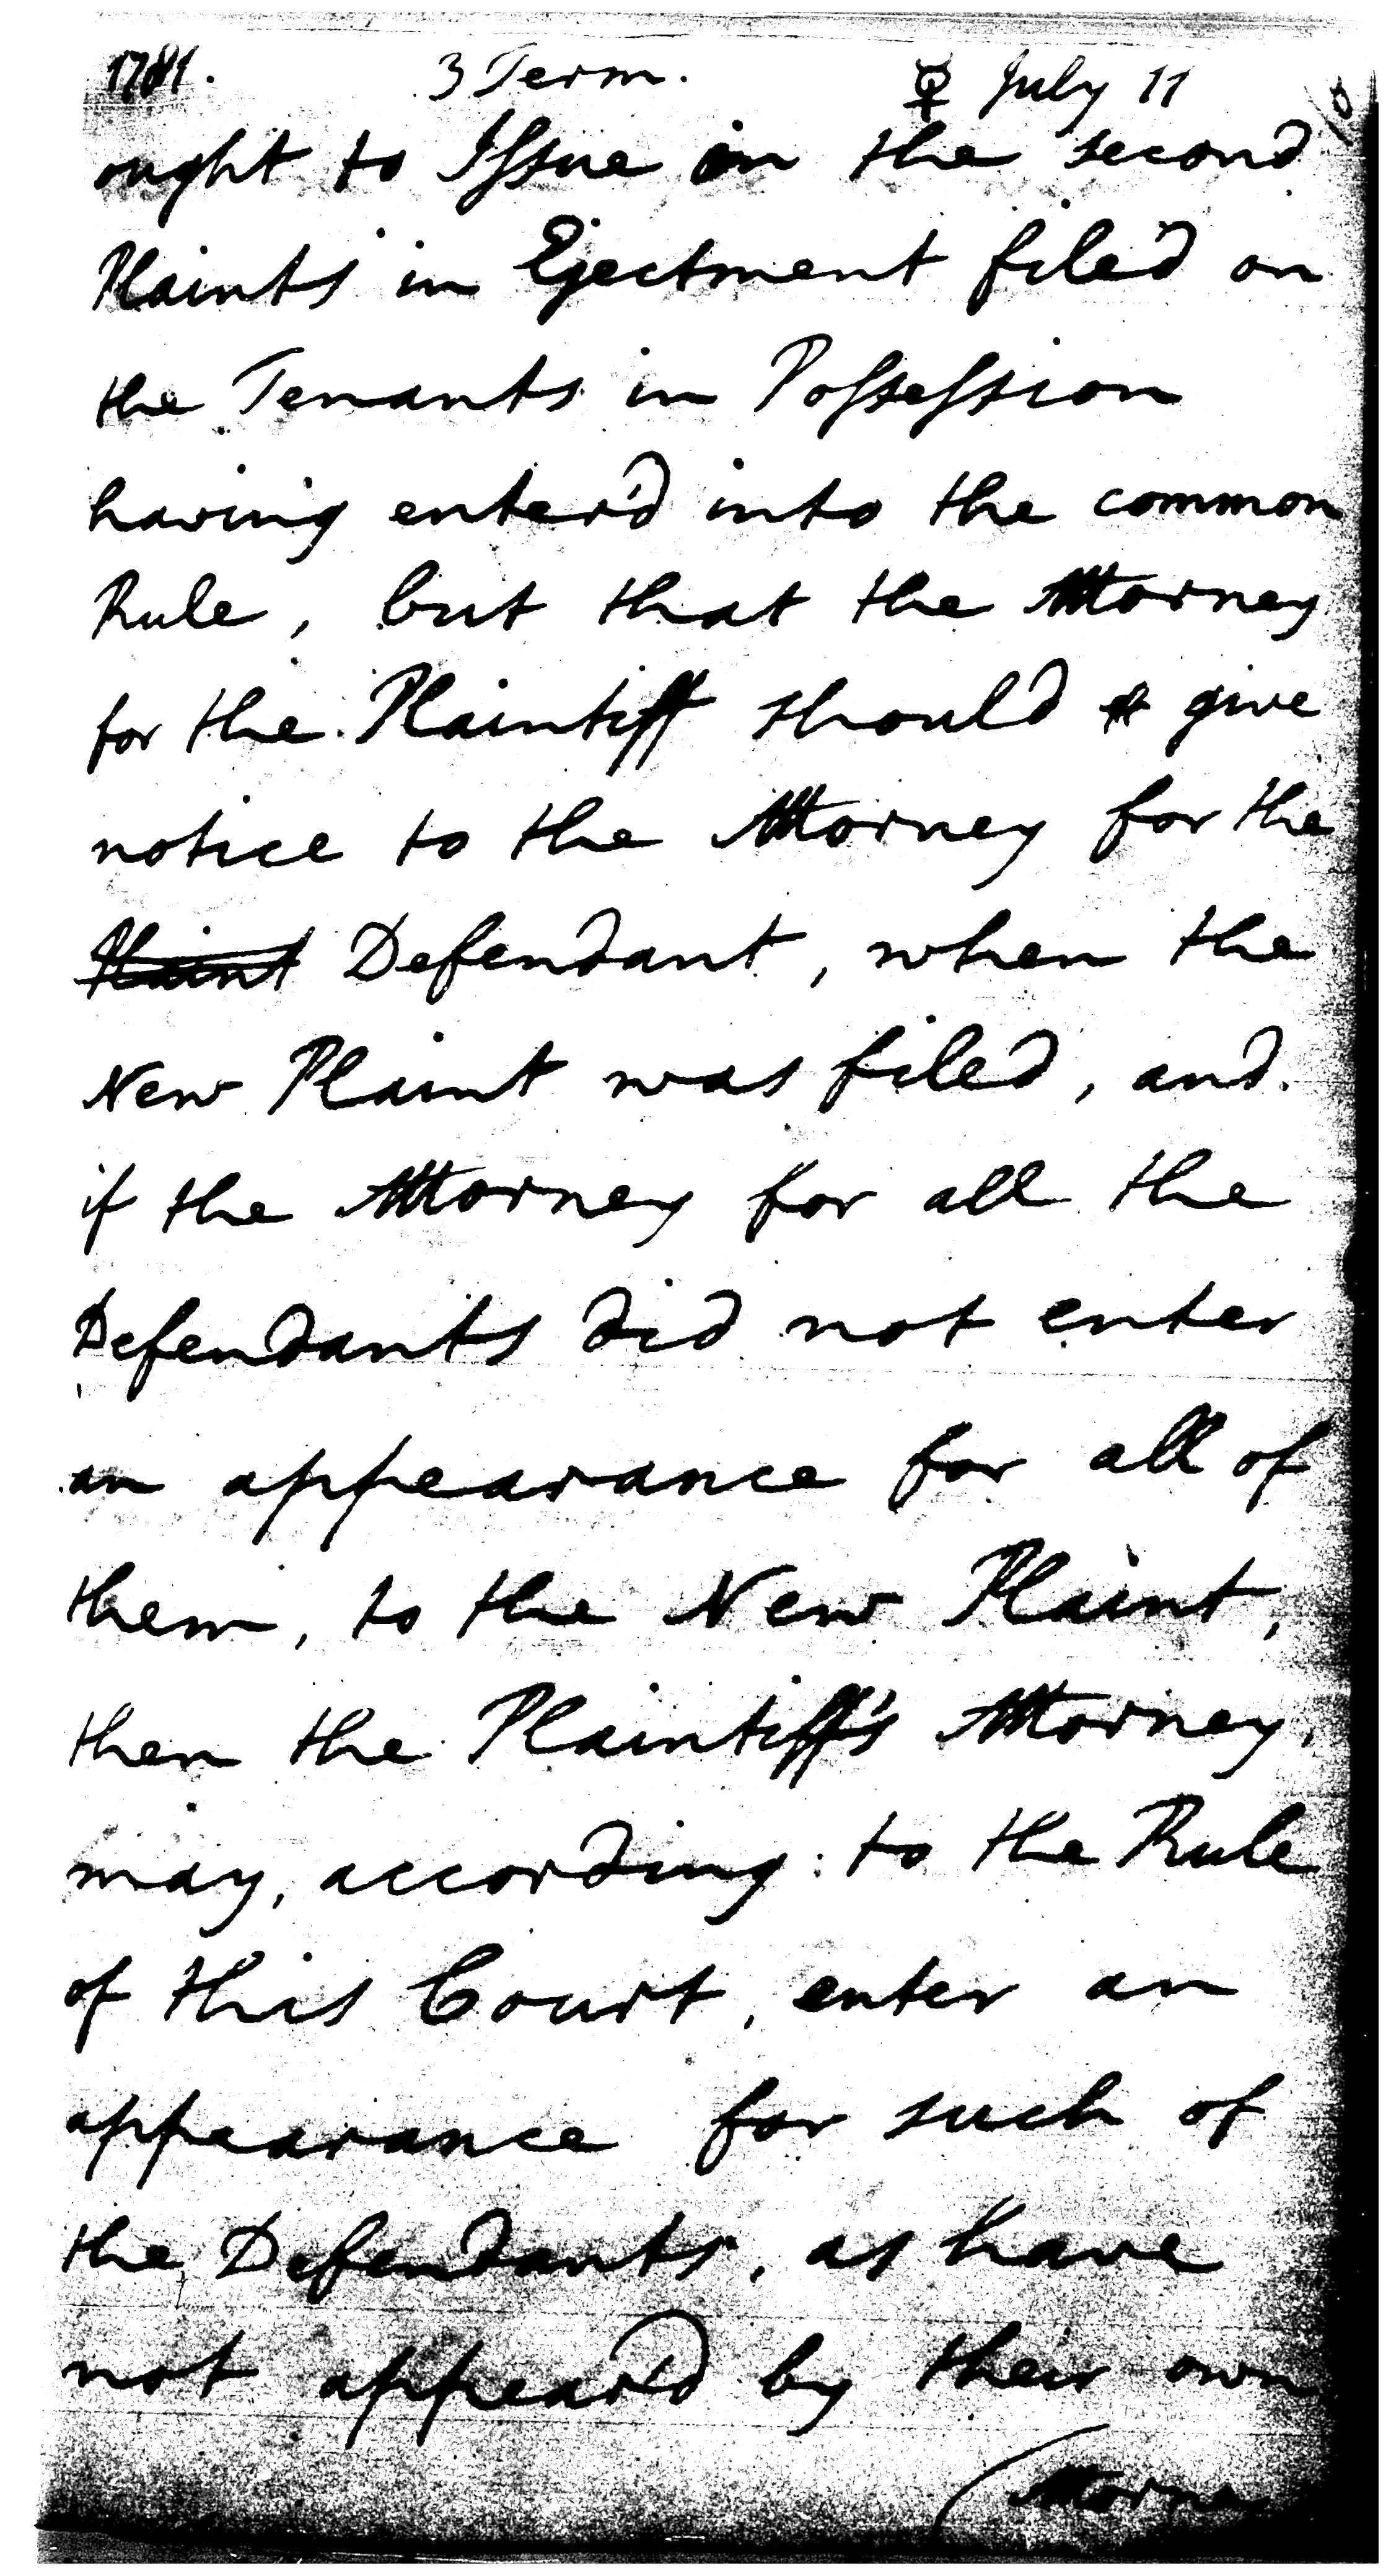 1781. 3 Term. ☿ July 11
ought to Issue in the second
Plaints in Ejectment filed on
the Tenants in Possession
having enter'd into the common
Rule, but that the Attorney
for the Plaintiff should give
notice to the Attorney for the
Plaint Defendant, when the
New Plaint was filed, and
if the Attorney for all the
Defendants did not enter
an appearance for all of
them, to the New Plaint,
then the Plaintiff's Attorney,
may, according to the Rule
of this Court, enter an
appearance for such of
the Defendants, as have
not appear'd by their own
Attorney